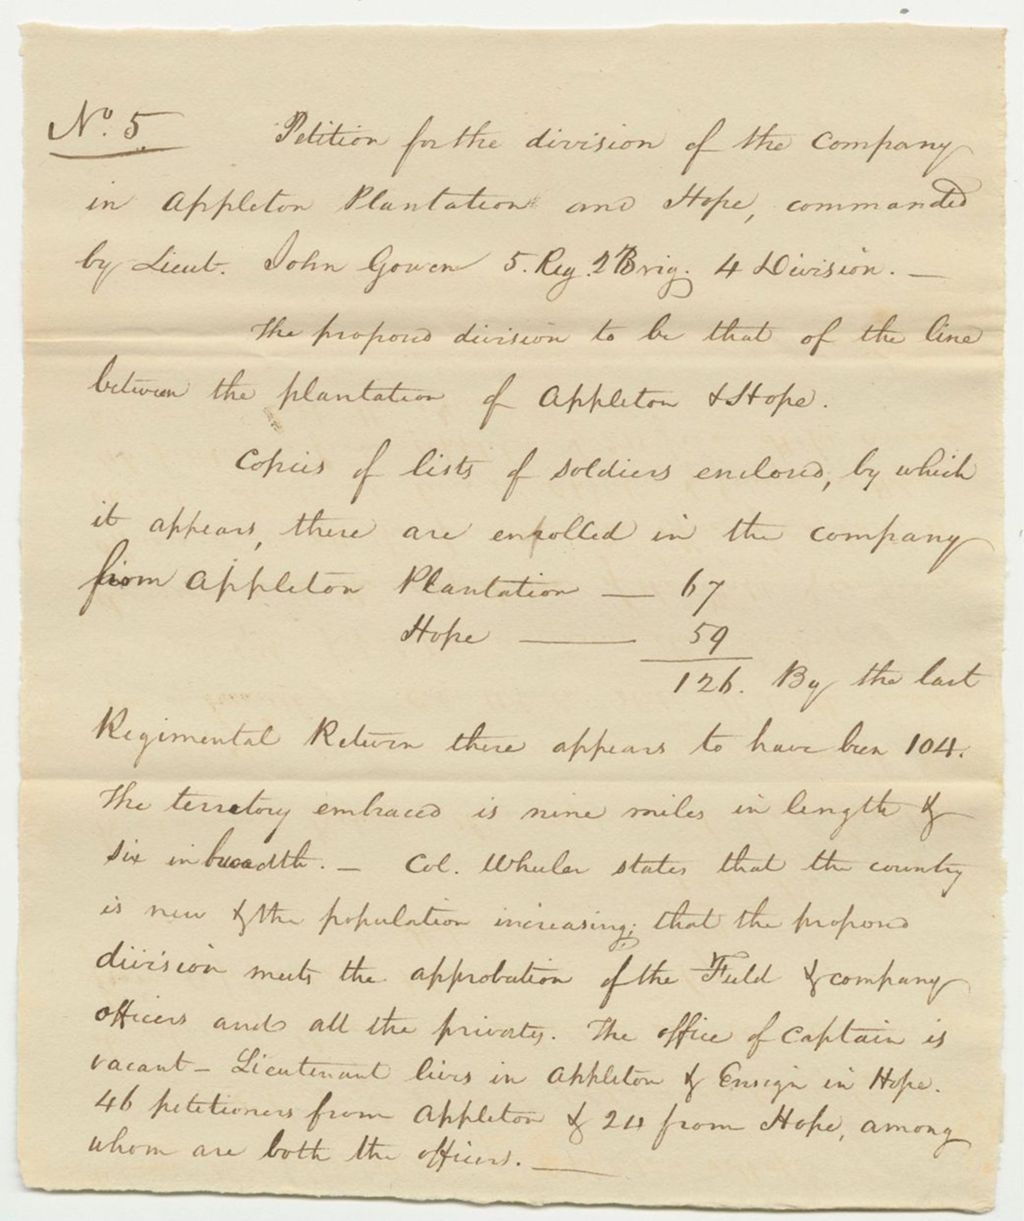 No. 5 Petition for the division of the Company
in Appleton Plantation and Hope, commanded
by Lieut. John Gowen 5. Reg. 2 Brig. 4 Division. —
The proposed division to be that of the line
between the plantation of Appleton & Hope.
Copies of lists of soldiers enclosed, by which
it appears, there are enrolled in the company
from Appleton Plantation — 67
Hope — 59
126. By the last
Regimental Return there appears to have been 104.
The terretory embraced is nine miles in length &
six in breadth. — Col. Wheeler states that the country
is new & the population increasing; that the proposed
division meets the approbation of the Field & company
officers and all the privates. The office of Captain is
vacant — Lieutenant lives in Appleton & Ensign in Hope.
46 petetioners from Appleton & 24 from Hope, among
whom are both the officers. —